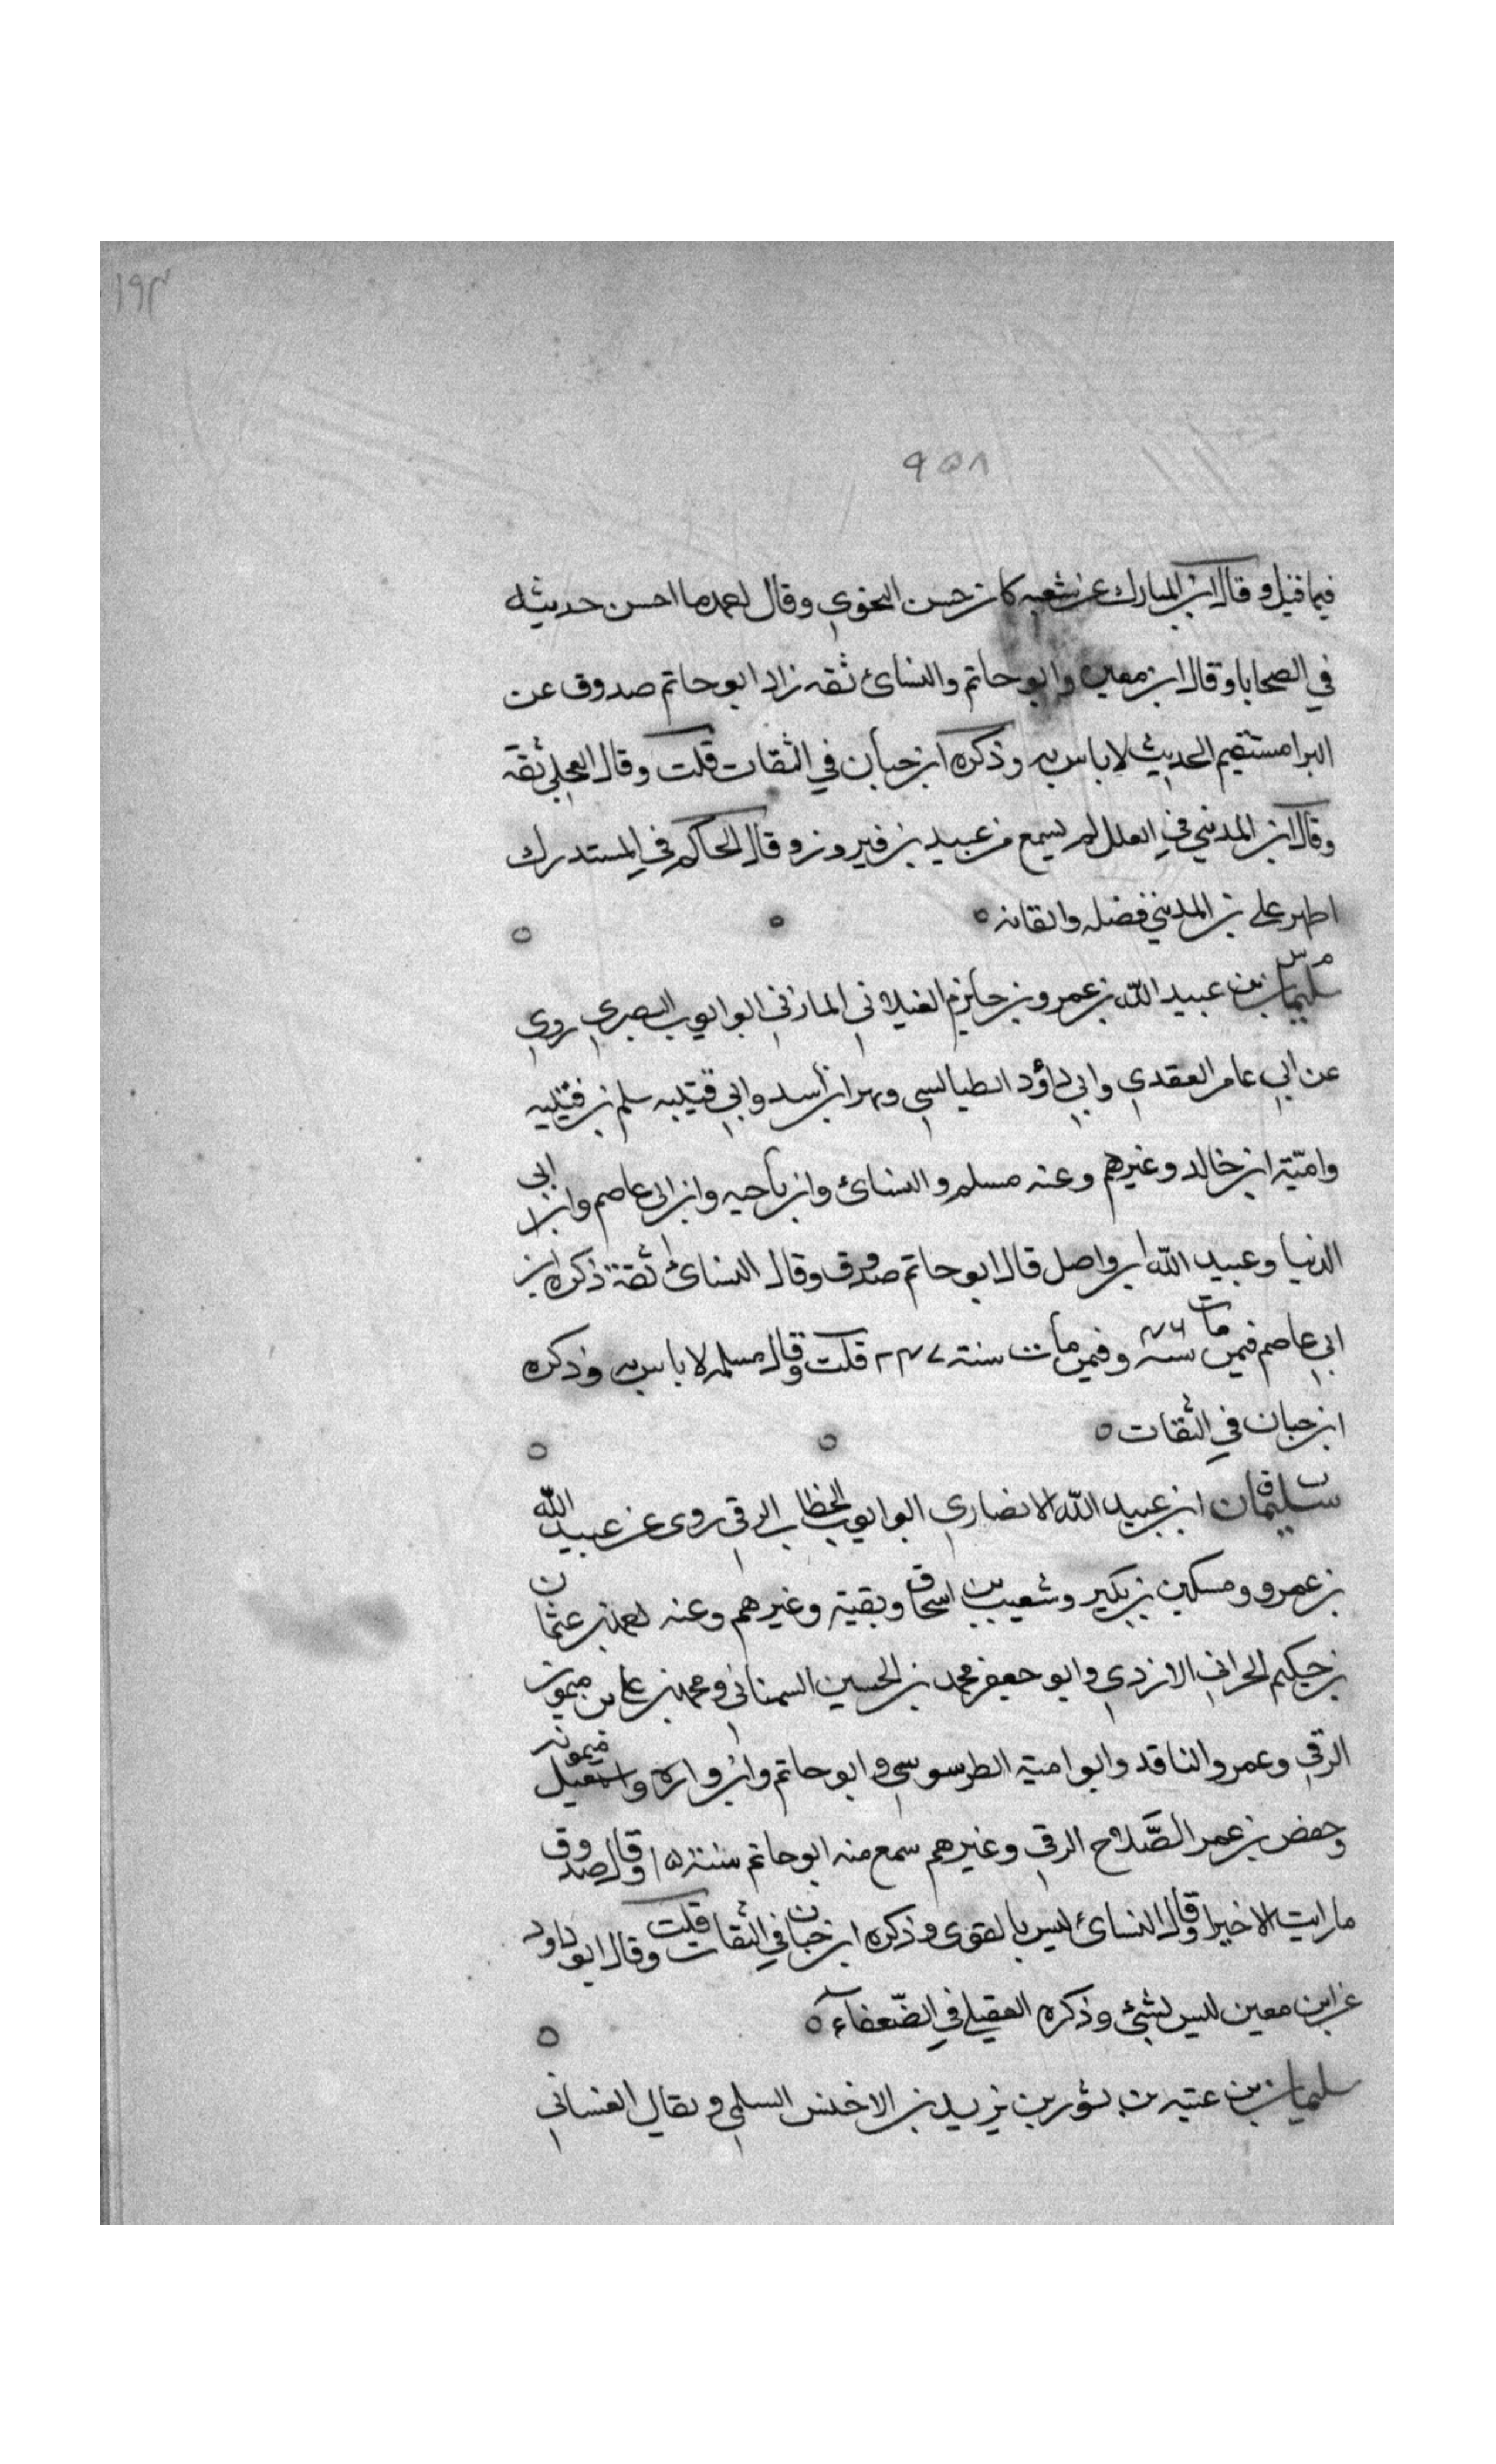 ١٩٣
٩٥٨
فيما قيل وقال ابن المبارك عن شعبه كان حسن النحوي وقال احمد ما احسن حديثه
في الضحايا وقال ابن معين وابو حاتم والنسائ ثقه زاد ابو حاتم صدوق عن
البرا مستقيم الحديث لا باس به وذكره ابن حبان في الثقات قلت وقال العجلي ثقه
وقال ابن المديني في العلل لم يسمع من عبيد بن فيروز وقال الحاكم في المستدرك
اظهر علي بن المديني فضله واتقانه ٥
م س
سليمان بن عبيد الله بن عمرو بن جابر الغيلاني المازني ابو ايوب البصري روي
عن ابي عامر العقدي وابي داؤد الطيالسي وبهز ابن اسد وابي قتيبه سلم بن قتيبه
واميّة ابن خالد وغيرهم وعنه مسلم والنسائ وابن ناجيه وابن ابي عاصم وابن ابي
الدنيا وعبيد الله ابن واصل قال ابو حاتم صدوق وقال النسائ ثقة ذكره ابن
ابي عاصم فيمن مات سنة ٤٦ وفيمن مات سنة ٢٤٧ قلت وقال مسلمه لا باس به وذكره
ابن حبان في الثقات ٥
ت ق
سليمان ابن عبيد الله الانصاري ابو ايوب الخطاب الرقي روى عن عبيد الله
بن عمرو ومسكين بن بكير وشعيب بن اسحاق وبقية وغيرهم وعنه احمد بن عثمان
بن حكيم الحراني الازدي وابو جعفر محمد بن الحسين السمناني ومحمد بن علي بن ميمون
الرقي وعمرو الناقد وابو امية الطرسوسي وابو حاتم وابن واره واسمعيل ميمونه
وحفص بن عمر الصّلاح الرقي وغيرهم سمع منه ابو حاتم سنة ١٥ وقال صدوق
ما رايت الا خيرا وقال النسائ ليس بالقوى وذكره ابن حبان في الثقات قلت وقال ابو داود
عن ابن معين ليس بشئ وذكره العقيلي في الضّعفآء ٥
سليمان بن عتبه بن ثور بن يزيد بن الاخنس السلمي ويقال الغساني